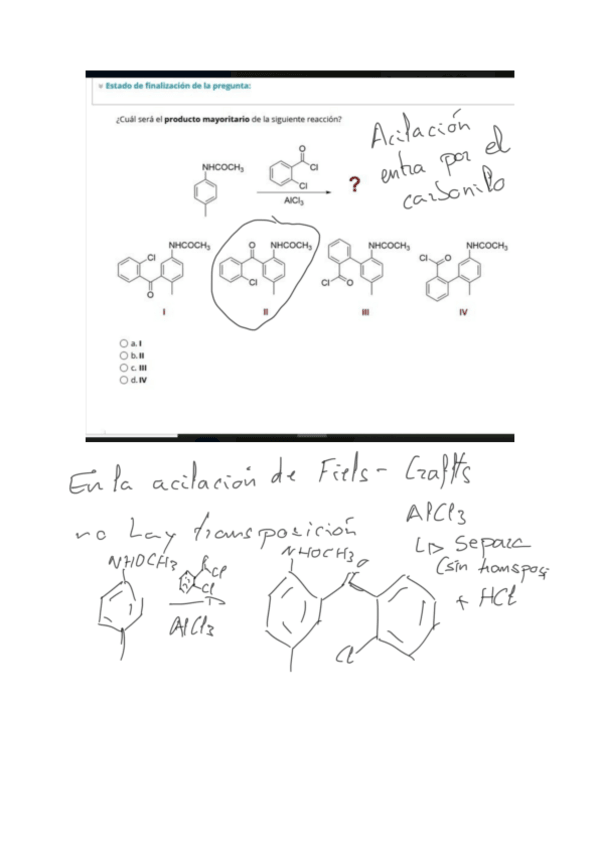 Estado de finalización de la pregunta:
¿Cuál será el producto mayoritario de la siguiente reacción?
Acilación
entra por el
carbonilo
NHCOCH₃
O
Cl
Cl
AlCl₃
?
Cl
NHCOCH₃
O
I
O
NHCOCH₃
Cl
II
NHCOCH₃
Cl
O
III
Cl
O
NHCOCH₃
IV
a. I
b. II
c. III
d. IV
En la acilación de Fiels-Crafts
no hay transposición
AlCl3
↳ Separa
(sin transpos
+ HCl
NHOCH3
Cl
Cl
AlCl3
NHOCH3
O
Cl